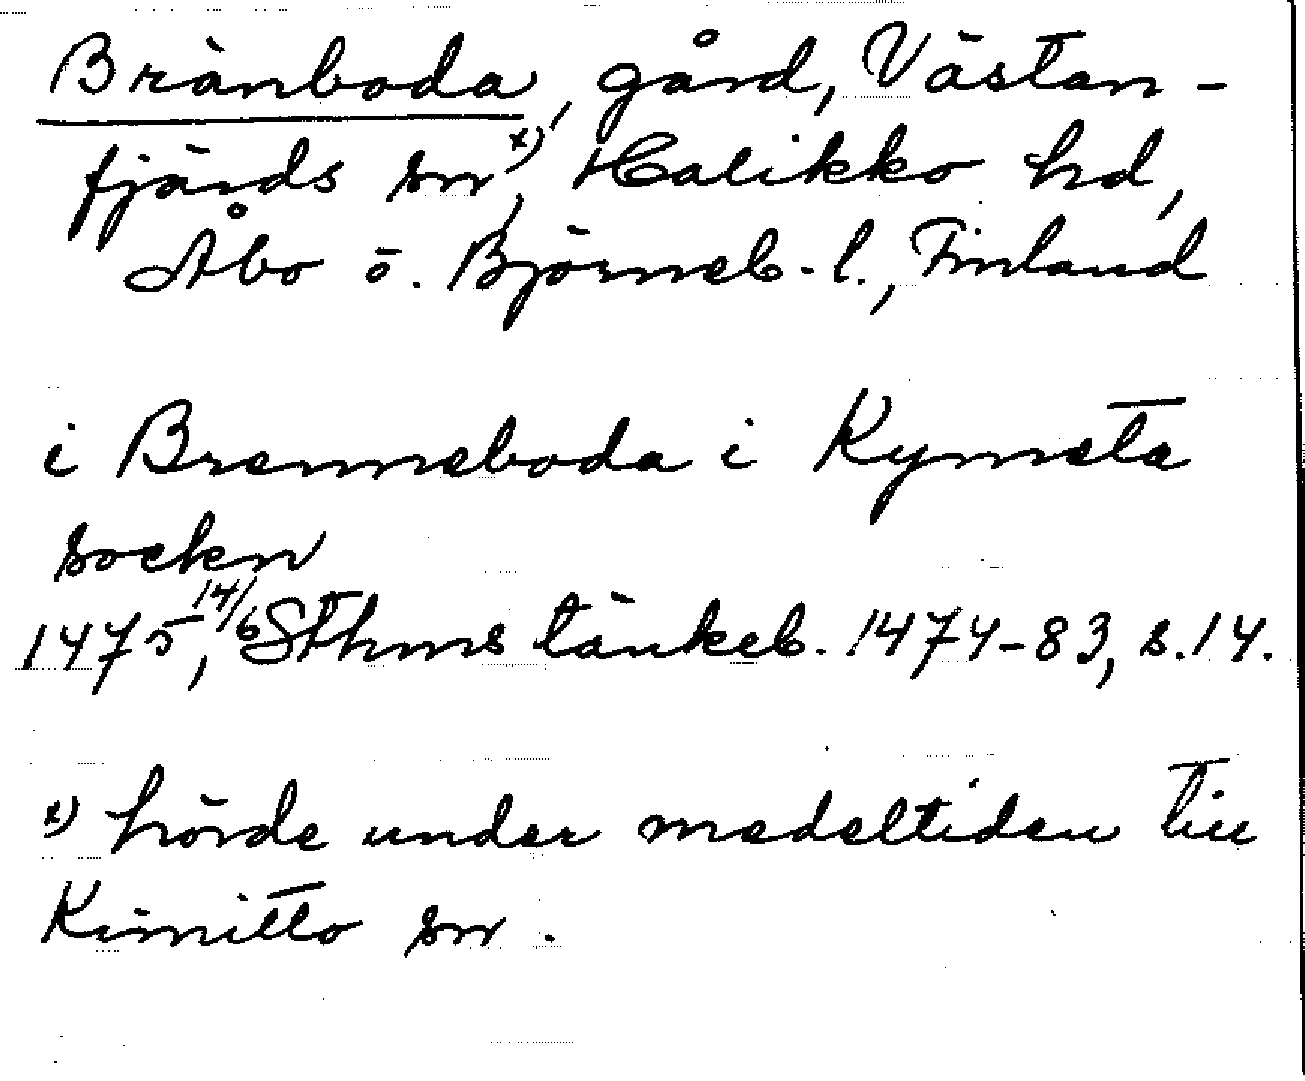 Bränboda, gård, Västan-
fjärds sn x), Halikko hd,
Åbo o. Björneb. l., Finland
i Brenneboda i Kymeta
sockn
1475 14/6, Sthms tänkeb. 1474-83, s. 14.
x) hörde under medeltiden till
Kimitto sn.